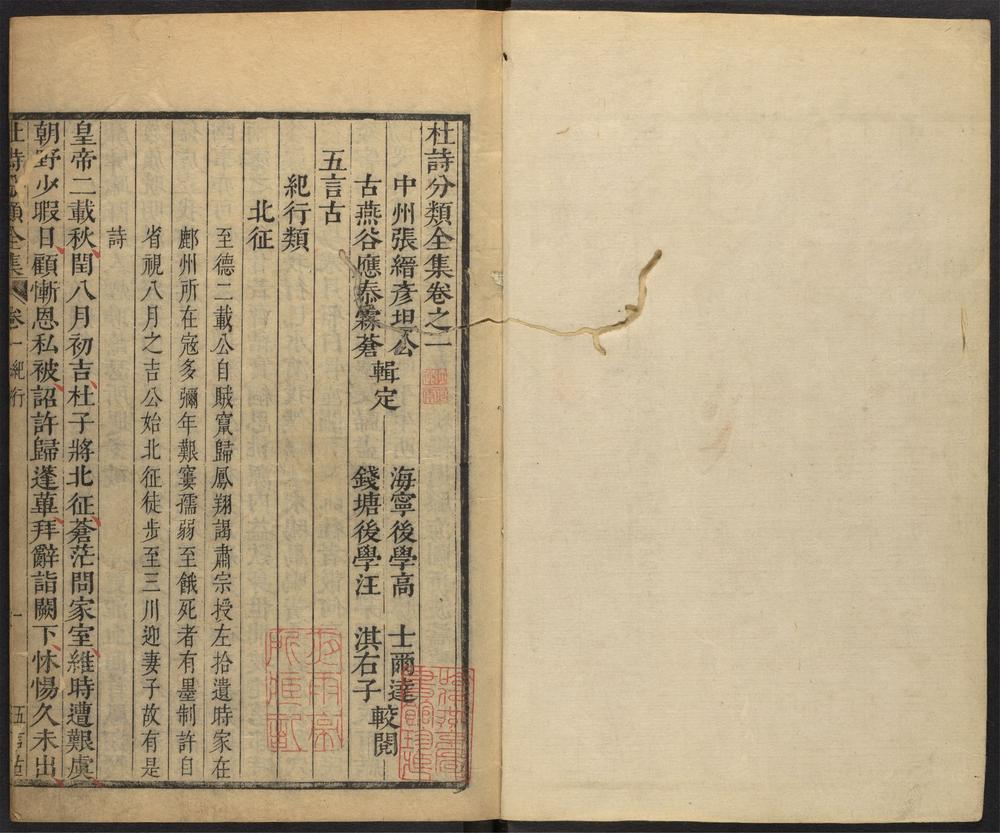 杜詩分類全集卷之一
中州張縉彥坦公
古燕谷應泰霖蒼
輯定
海寧後學高　士爾達
錢塘後學汪　淇右子
較閱
五言古
紀行類
北征
至德二載公自賊竄歸鳳翔謁肅宗授左拾遺時家在
鄜州所在寇多彌年艱窶孺弱至餓死者有墨制許自
省視八月之吉公始北征徒步至三川迎妻子故有是
詩
皇帝二載秋閏八月初吉杜子將北征蒼茫問家室維時遭艱虞
朝野少暇日顧慚恩私被詔許歸蓬蓽拜辭詣闕下怵惕久未出
杜詩分類全集　卷一　紀行　一　五言古